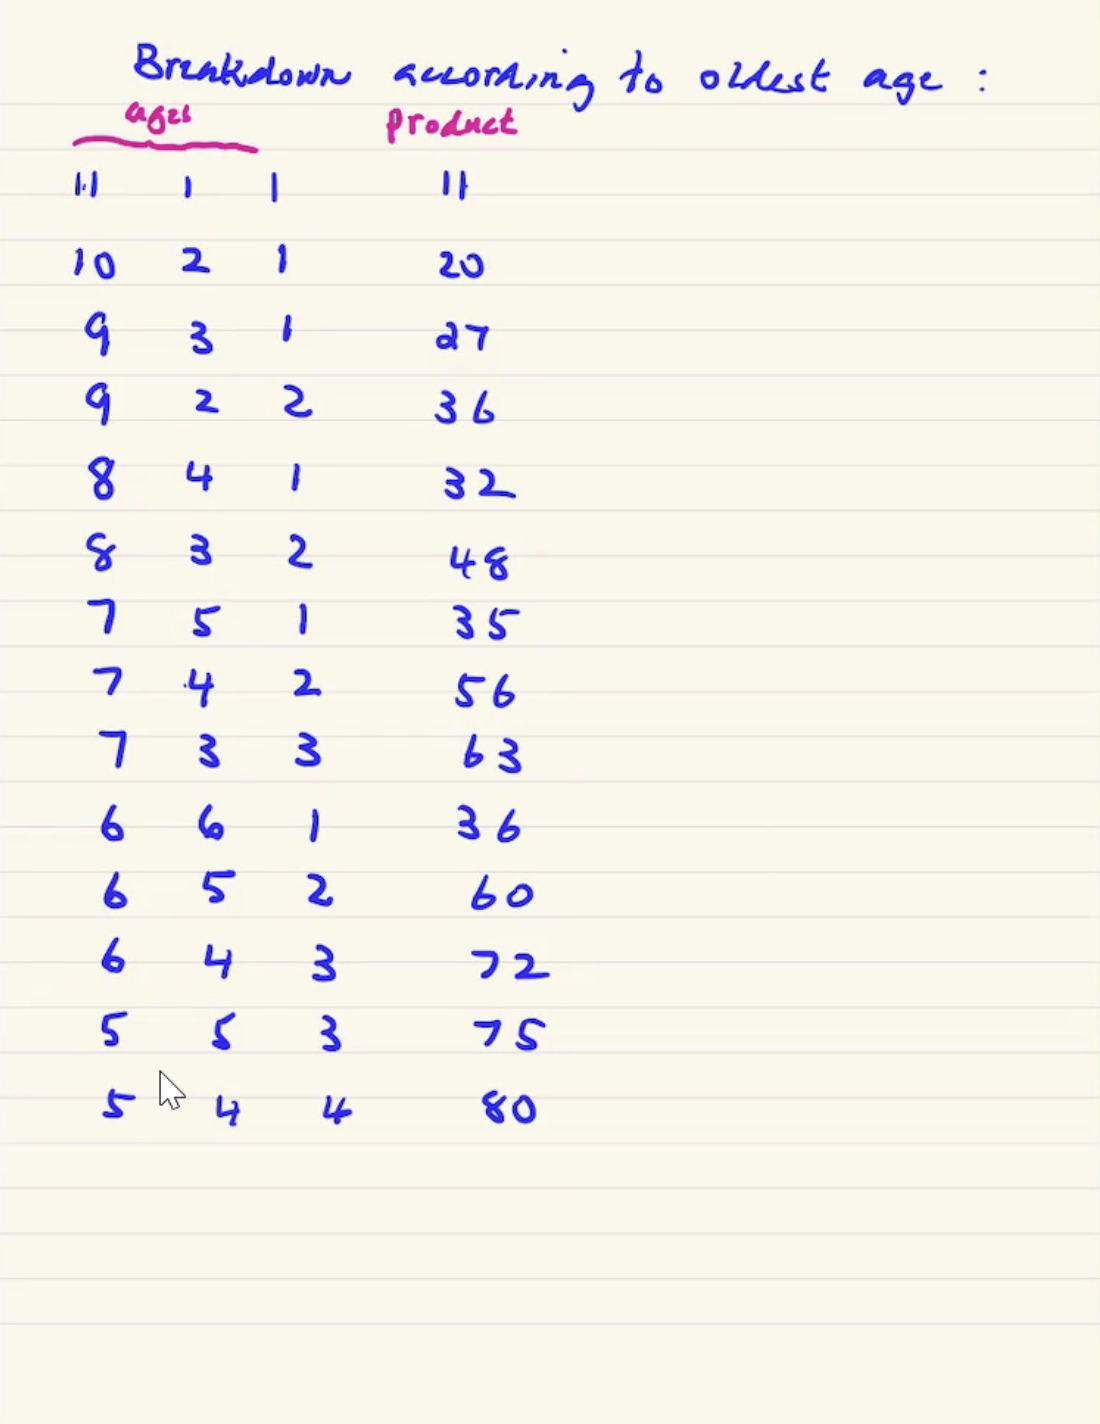 Breakdown according to oldest age :
ages product
11 1 1 11
10 2 1 20
9 3 1 27
9 2 2 36
8 4 1 32
8 3 2 48
7 5 1 35
7 4 2 56
7 3 3 63
6 6 1 36
6 5 2 60
6 4 3 72
5 5 3 75
5 4 4 80